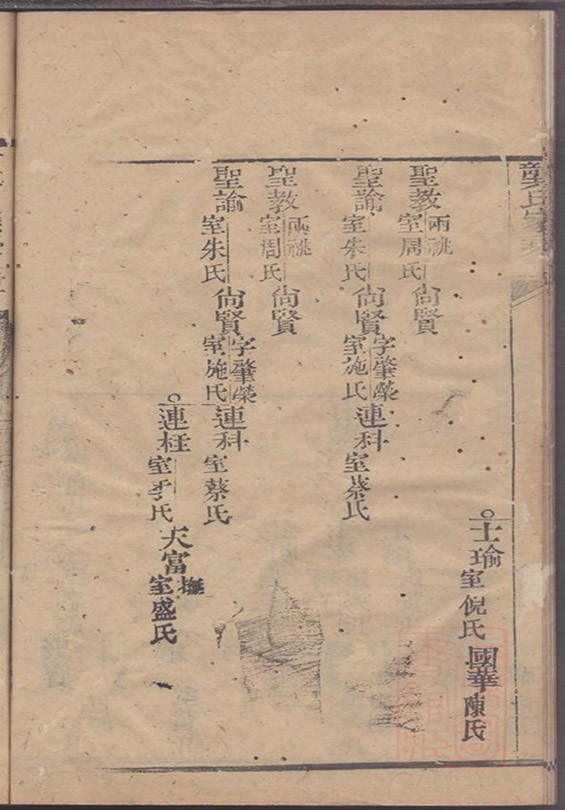 士瑜室倪氏國華陳氏
聖教兩祧室周氏尙賢
聖諭室朱氏尙賢字肇榮室施氏連科室蔡氏
聖教兩祧室周氏尙賢
聖諭室朱氏尙賢字肇榮室施氏連科室蔡氏
連枉室李氏天富撫室盛氏